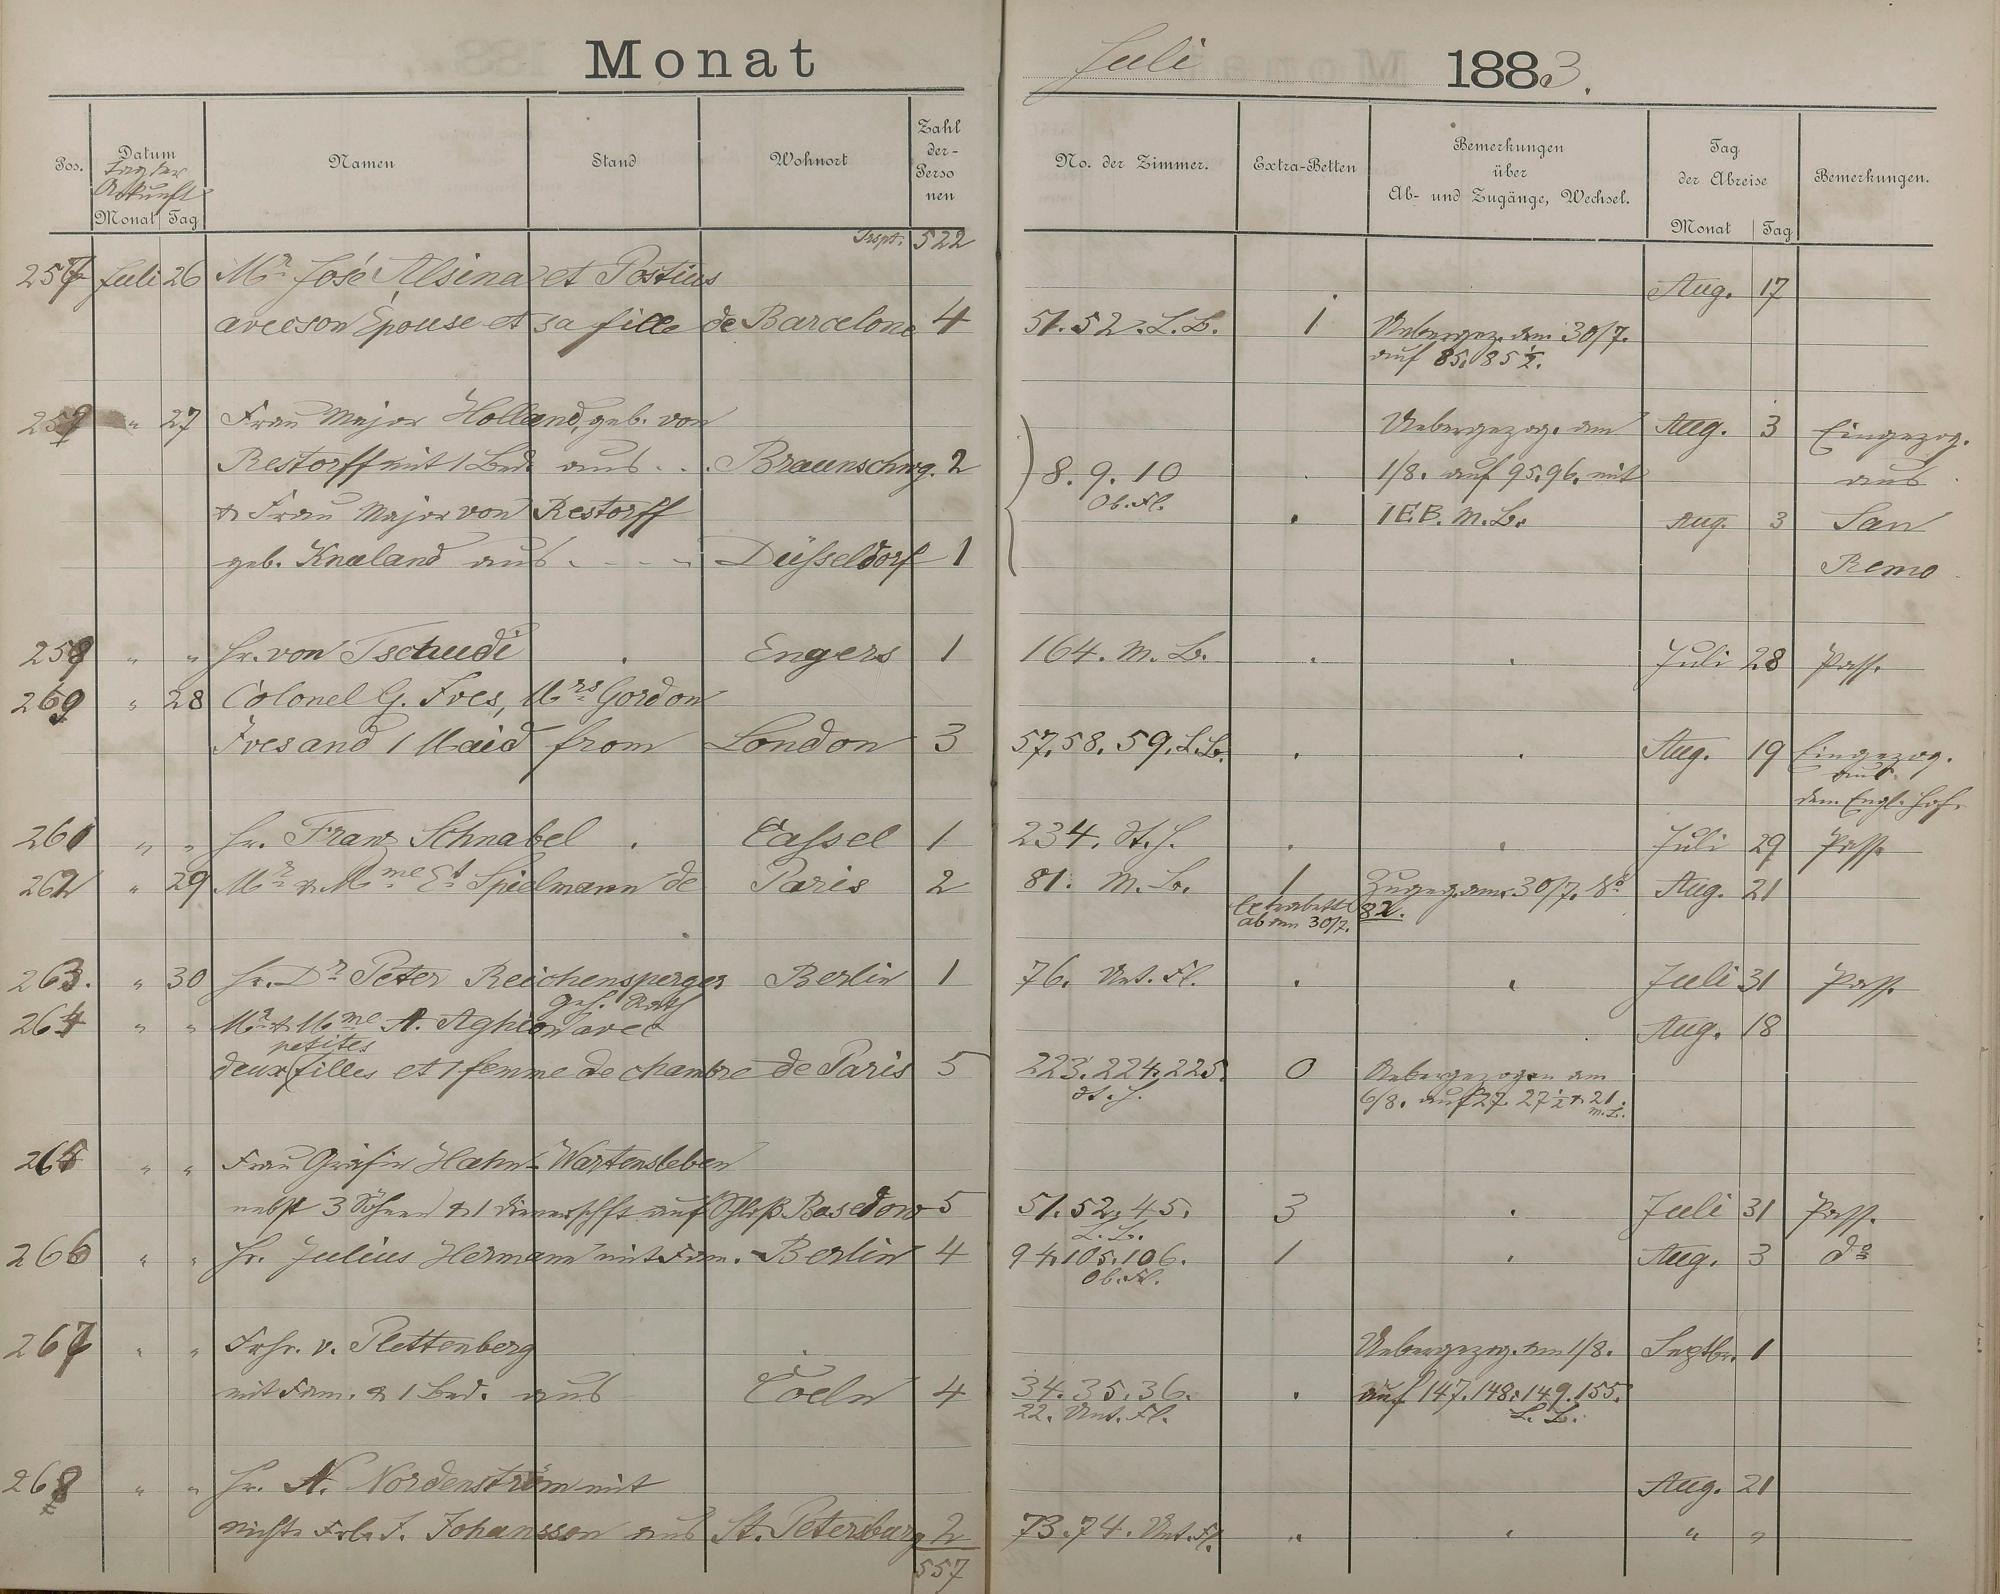 Monat Juli 1883.
Pos. Datum Namen Stand Wohnort Zahl der Personen No. der Zimmer. Extra-Betten Bemerkungen über Ab- und Zugänge, Wechsel. Tag der Abreise Bemerkungen.
Tag der Ankunft
Monat Tag Monat Tag
Trspt. 522
257 Juli 26 Mr José Alsina et Postius Aug. 17
avec son Épouse et sa fille de Barcelone 4 51. 52. L. B. 1 Uebergez. am 30/7.
auf 85. 85 1/2.
" 27 Frau Major Holland, geb. von Uebergezog. am Aug. 3 Eingezog.
Restorff mit 1 Bed. aus . . . Braunschwg. 2 8. 9. 10 1/8. auf 95. 96. mit aus
Ob. Fl.
& Frau Major von Restorff 1 E.B. M. B. Aug. 3 San
geb. Knaland aus - - - - Düsseldorf 1 Remo
259 " " Hr. von Tschudi Engers 1 164. M. B. Juli 28 Pass.
269 " 28 Colonel G. Ives, Mrs Gordon
Ives and 1 Maid from London 3 57. 58. 59. L. B. Aug. 19 Eingezog.
aus
dem Engl. Hof.
261 " " Hr. Franz Schnabel Cassel 1 234. Juli 29 Pass.
262 " 29 Mr & Mme Et Spielmann de Paris 2 81. M. B. 1 Zugeg. am 30/7. No Aug. 21
Extrabett 82.
ab am 30/7.
263. " 30 Hr. Dr Peter Reichensperger Berlin 1 76. Unt. Fl. Juli 31 Pass.
Geh. Rath
264 " " Mr & Mme A. Aghion avec Aug. 18
petites
deux filles et 1 femme de chambre de Paris 5 223. 224. 225. 0 Uebergezogen am
6/8. auf 27. 27 1/2 & 21.
M. B.
265 " " Frau Gräfin Hahn-Wartensleben
nebst 3 Söhnen & 1 Dienerschft auf Schloß Basedow 5 51. 52. 45. 3 Juli 31 Pass.
L. B.
266 " " Hr. Julius Hermann mit Fam. - Berlin 4 94. 105. 106. 1 Aug. 3 do
Ob. Fl.
267 " " Frhr. v. Plettenberg Uebergezog. am 1/8. Septbr. 1
mit Fam. & 1 Bed. aus Coeln 4 34. 35. 36. auf 147. 148. 149. 155.
22. Unt. Fl. L. B.
268 " " Hr. N. Nordenström mit Aug. 21
Nichte Frl. J. Johansson aus St. Petersburg 2 73. 74. Unt. Fl. " "
557